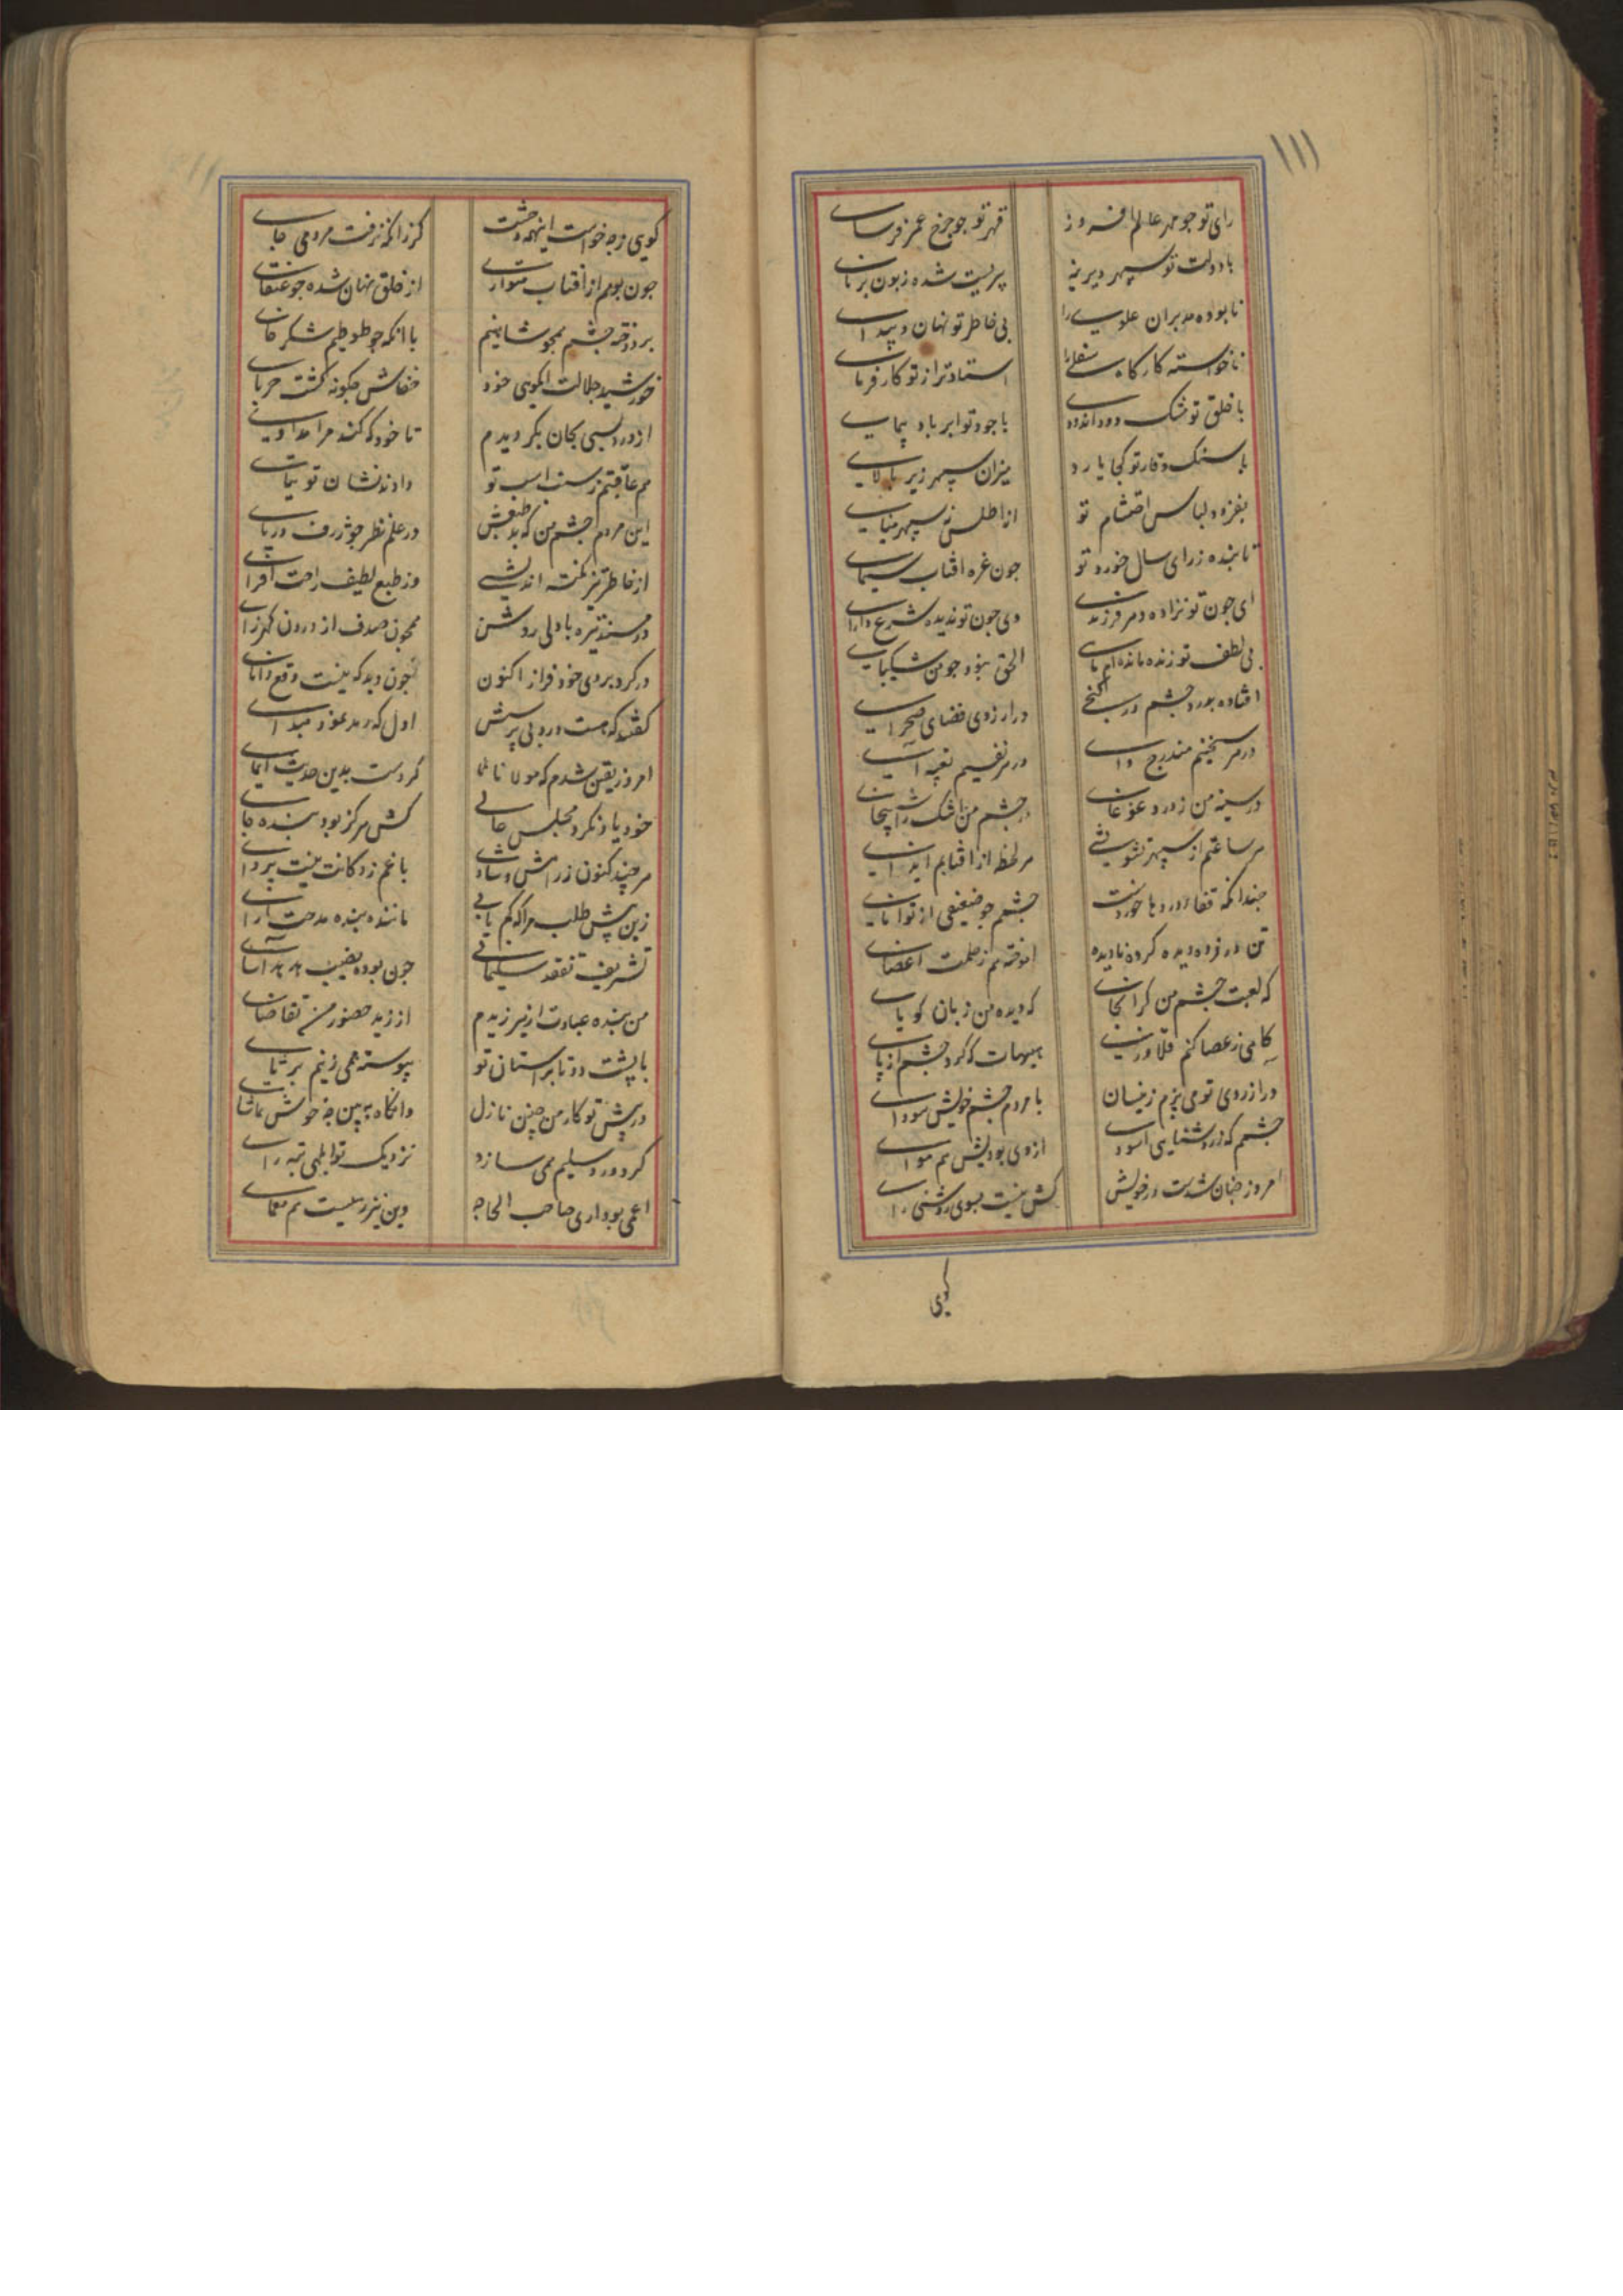 ۱۱۱
رای تو جو مهر عالم افروز قهر تو جو جرخ عمر فرسای
با دولت تو سپهر دیرینه پیریست شده زبون برنای
نابوده مدبران علوی را بی خاطر تو نهان و پیدای
ناخواسته کارکاه سفلی را استادتر از تو کارفرمای
با خلق تو مشک دود اندوده با جود تو ابر باد پیمای
با سنک وقار تو کجا یارد میزان سپهر زیر بالای
بفزوده لباس احتشام تو از اطلس نه سپهر مینای
تابنده ز رای سال خورد تو جون غره افتاب سیمای
ای جون تو نزاده دهر فرزندی وی جون تو ندیده شرع دارای
بی لطف تو زنده مانده ام بای الحق نبود جو من شکیبای
افتاده بدرد جشم در کنجی در ارزوی فضای صحرای
در هر سخنیم مندرج وای در هر نفسیم تعبیه ای
در سینه من ز درد غوغای در جشم من اشک را شبیخانی
هر ساعتم از سپهر تشویشی هر لحظه از افتابم ایذای
جندانکه قفا ز دردها خوردست جشمم جو ضعیفی از توانای
تن در زده دیده کرده نادیده اندوخته هم ز ظلمت اعضای
که لعبت جشم من کران جانی که دیده من زبان کویای
کاهی ز عصا کنم قلاوزی هیهات که کرد جشم از پای
در ارزوی تو می پزم زینسان با مردم جشم خویش سودای
جشمم که ز روشنایی اسودی از وی بودیش هم مواسای
امروز جنان شدست در خویش کش نیست بسوی روشنی رای
کویی
کویی ز جه خواست اینهمه وحشت کز زانکه نرفت مردمی جای
جون بومم از افتاب متواری از خلق نهان شده جو عنقای
بردوخته جشم همجو شاهینم با انکه جو طوطیم شکرخای
خورشید جلالت ایکویی خود خفاش جکونه کشت حربای
از درد بسی بجان بکردیدم تا خود که کند مرا مداوای
هم عاقبتم ز اسب تو دادند نشان توتیای
این مردم جشم من که بد طبعش در علم نظر جو ژرف دریای
از خاطر تیز نکته اندیشی وز طبع لطیف راحت افزای
در مسند تیره با دلی روشن همجون صدف از درون کهرزای
در کرد بروی خود فراز اکنون جون دید که نیست وقع دانای
کفتند که هست درو بی پرسش اول که دهد عفو مبدای
امروز یقین شدم که مولانا کردست بدین حدیث ایمای
خود یاد نکرد مجلس عالی کش هرکز بود بنده جای
هر جند کنون ز رامش و شادی با غم زدکانت نیست پروای
زین پیش طلب مرا که کم یابی ماننده بنده مدحت ارای
تشریف تفقد سلیمانی جون بوده نصیب هدهد اسای
من بنده عبادت ار نیرزیدم ارزید حضور من تقاضای
با پشت دوتا بر استان تو پیوسته همی زنیم بر تای
در پیش تو کار من جنین نازل وانکاه ببین جه خوش تماشای
کر دور وسلیم می سازد نزدیک تو ابلهی تبه رای
اعمی بود اری صاحب الحاجه وین نیز رهیست هم معمای